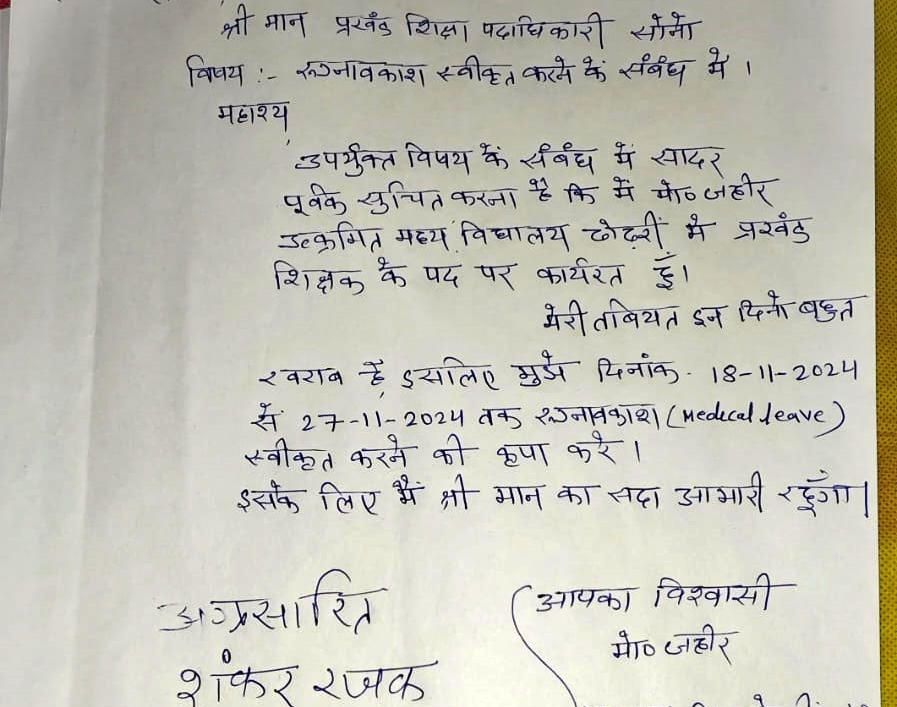 श्री मान प्रखंड शिक्षा पदाधिकारी सोनो
विषय :- रूग्नावकाश स्वीकृत करने के संबंध में ।
महाश्य
उपर्युक्त विषय के संबंध में सादर
पूर्वक सुचित करना है कि मैं मो० जहीर
उत्क्रमित मध्य विधालय ढोढरी में प्रखंड
शिक्षक के पद पर कार्यरत हूँ।
मेरी तबियत इन दिनो बहुत
खराब है इसलिए मुझे दिनांक - 18-11-2024
से 27-11-2024 तक रूग्नावकाश (Medecal leave)
स्वीकृत करने की कृपा करे ।
इसके लिए मैं श्री मान का सदा आभारी रहूँगा।
अग्रसारित
शंकर रजक
आपका विश्वासी
मो० जहीर